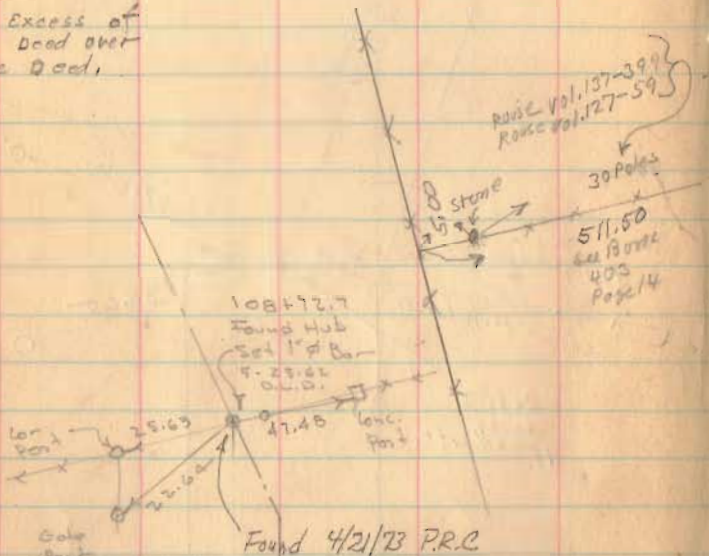 Excess of
Deed over
Deed.
Rouse Vol. 137-399
Rouse Vol. 127-59
30 Poles
Stone
511.50
See Book
403
Page 14
108+72.7
Found Hub
Set 1" Ø Bar
D.W.D.
Cor
Post
25.63
47.48
Conc.
Post
22.64
Gate
Post
Found 4/21/73 P.R.C